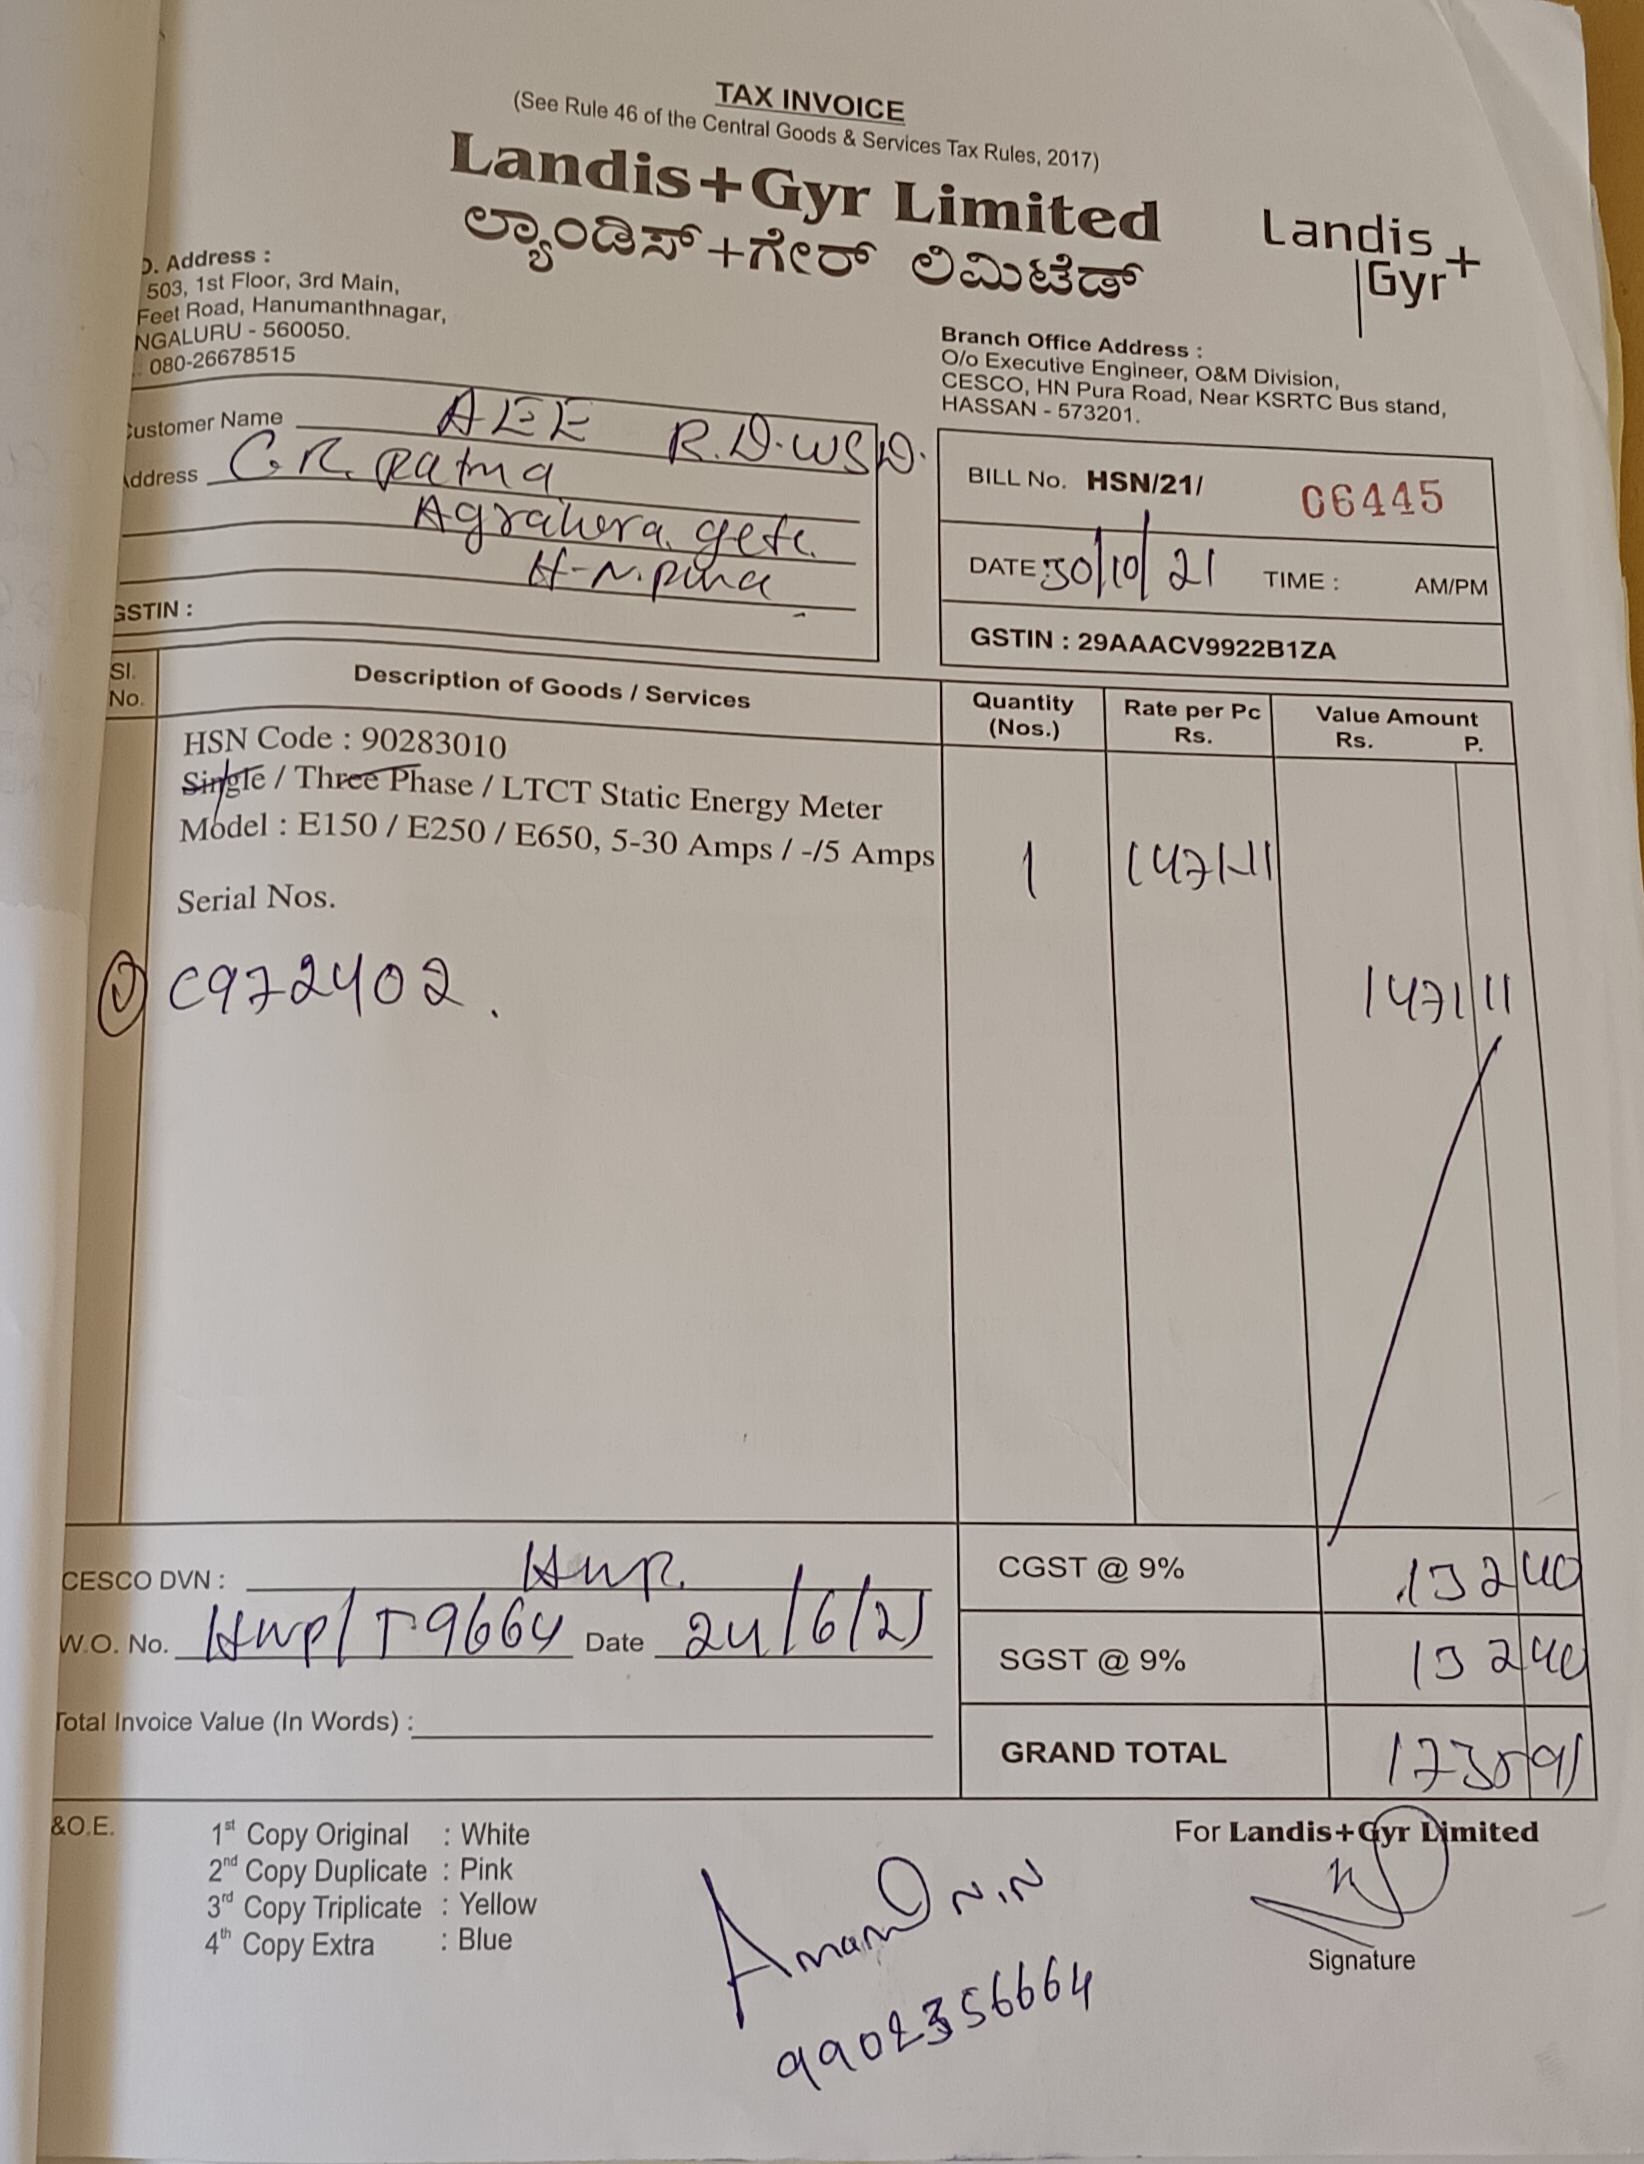 TAX INVOICE
(See Rule 46 of the Central Goods & Services Tax Rules, 2017)
Landis+Gyr Limited
ಲ್ಯಾಂಡಿಸ್+ಗೇರ್ ಲಿಮಿಟೆಡ್
Landis
Gyr+
D. Address :
503, 1st Floor, 3rd Main,
Feet Road, Hanumanthnagar,
NGALURU - 560050.
080-26678515
Branch Office Address :
O/o Executive Engineer, O&M Division,
CESCO, HN Pura Road, Near KSRTC Bus stand,
HASSAN - 573201.
Customer Name AEE R.D.WSD.
Address C.R. Ratna
Agrahera gete.
H-N.pura
GSTIN :
BILL No. HSN/21/ 06445
DATE 30/10/21 TIME : AM/PM
GSTIN : 29AAACV9922B1ZA
Sl. No. Description of Goods / Services Quantity (Nos.) Rate per Pc Rs. Value Amount Rs. P.
HSN Code : 90283010
Single / Three Phase / LTCT Static Energy Meter
Model : E150 / E250 / E650, 5-30 Amps / -/5 Amps 1 1471-11
Serial Nos.
1 C972402. 1471 11
CESCO DVN : HNP. CGST @ 9% 132 40
W.O. No. HNP/T-9664 Date 24/6/21 SGST @ 9% 132 40
Total Invoice Value (In Words) :
GRAND TOTAL 1735 91
&O.E.
1st Copy Original : White
2nd Copy Duplicate : Pink
3rd Copy Triplicate : Yellow
4th Copy Extra : Blue
For Landis+Gyr Limited
Signature
Anand N.N
9902356664